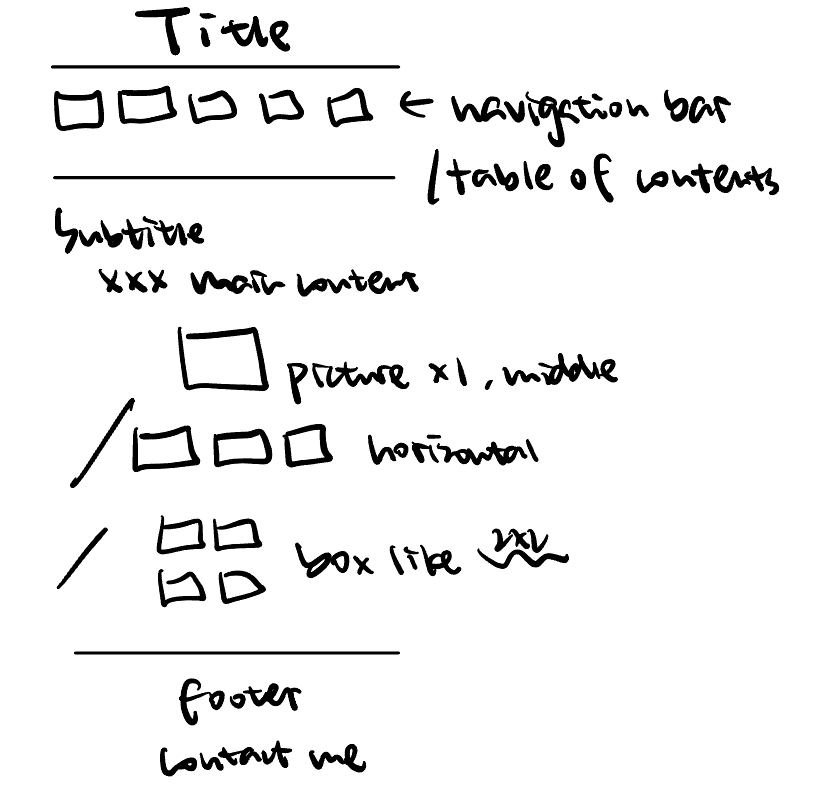 Title
← navigation bar
/table of contents
Subtitle
xxx main content
picture x1, middle
/ horizontal
/ box like 2x2
footer
contact me